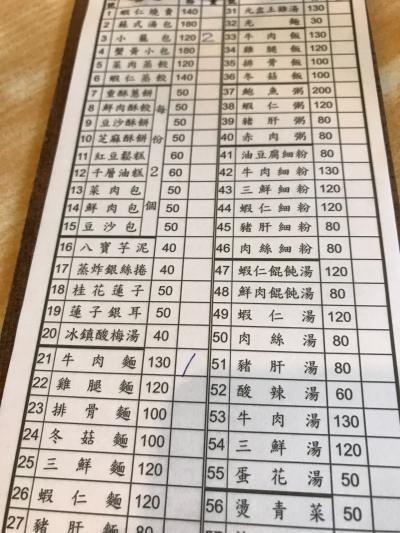 1 蝦仁燒賣 140
2 蘇式湯包 120
3 小籠包 120 2
4 蟹黃小包 180
5 菜肉蒸餃 120
6 蝦仁蒸餃 140
7 重酥蔥餅 50
8 鮮肉酥餃 50
9 豆沙酥餅 50
10 芝麻酥餅 50
11 紅豆鬆糕 60
12 千層油糕 60
13 菜肉包 50
14 鮮肉包 50
15 豆沙包 50
每份2個
16 八寶芋泥 40
17 蒸炸銀絲捲 40
18 桂花蓮子 50
19 蓮子銀耳 50
20 冰鎮酸梅湯 40
21 牛肉麵 130 /
22 雞腿麵 120
23 排骨麵 100
24 冬菇麵 100
25 三鮮麵 120
26 蝦仁麵 120
27 豬肝麵 80
31 元盅土雞湯 130
32 光麵 30
33 牛肉飯 130
34 雞腿飯 120
35 排骨飯 100
36 冬菇飯 100
37 鮑魚粥 200
38 蝦仁粥 120
39 豬肝粥 80
40 赤肉粥 80
41 油豆腐細粉 80
42 牛肉細粉 130
43 三鮮細粉 120
44 蝦仁細粉 120
45 豬肝細粉 80
46 肉絲細粉 80
47 蝦仁餛飩湯 120
48 鮮肉餛飩湯 80
49 蝦仁湯 120
50 肉絲湯 80
51 豬肝湯 80
52 酸辣湯 60
53 牛肉湯 130
54 三鮮湯 120
55 蛋花湯 50
56 燙青菜 50